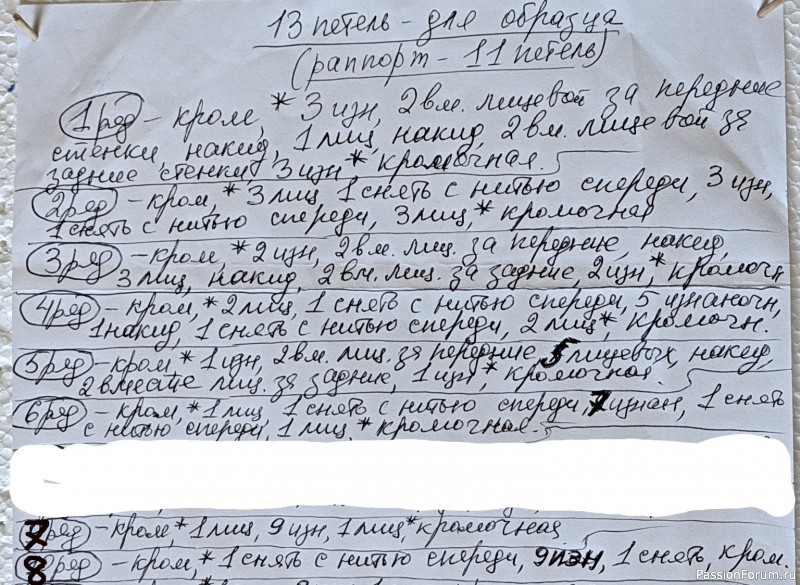 13 петель - для образца
(раппорт - 11 петель)
1 ряд - кром, * 3 изн, 2 вм. лицевой за передние
стенки, накид, 1 лиц, накид, 2 вм. лицевой за
задние стенки 3 изн, * кромочная.
2 ряд - кром, * 3 лиц, 1 снять с нитью спереди, 3 изн,
1 снять с нитью спереди, 3 лиц, * кромочная
3 ряд - кром * 2 изн, 2 вм. лиц. за передние, накид,
3 лиц, накид, 2 вм. лиц. за задние, 2 изн, * кромочн
4 ряд - кром, * 2 лиц, 1 снять с нитью спереди, 5 изнаночн,
1 накид, 1 снять с нитью спереди, 2 лиц *, кромочн.
5 ряд - кром * 1 изн, 2 вм. лиц. за передние 5 лицевых, накид,
2 вместе лиц. за задние, 1 изн, * кромочная.
6 ряд - кром, * 1 лиц, 1 снять с нитью спереди, 7 изнан, 1 снять
с нитью спереди, 1 лиц * кромочная.
7 ряд - кром, * 1 лиц, 9 изн, 1 лиц * кромочная,
8 ряд - кром, * 1 снять с нитью спереди, 9 изн, 1 снять, кром
PassionForum.ru